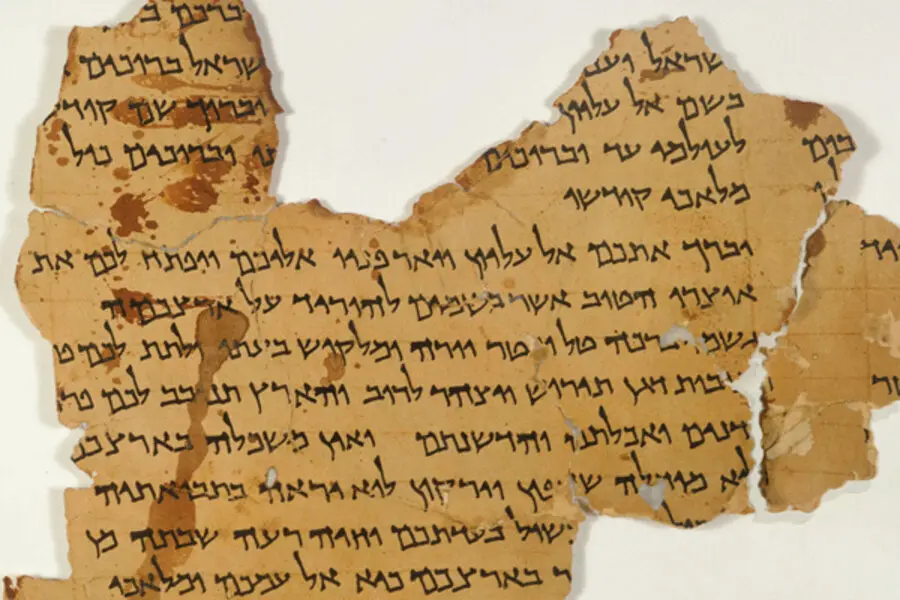 וברכם
שראל וענ שראל ברוכים
בשם אל עליון וברוך שם קודש
לעולמי עד וברוכים וברוכים כול
מלאכי קודשו
יברך אתכם אל עליון ויאר פניו אליכם ויפתח לכם את
אוצרו הטוב אשר בשמים להוריד על ארצכמה
גשמי ברכה טל ומטר יורה ומלקוש בעתו ולתת לכם
בות דגן תירוש ויצהר לרוב והארץ תנובב לכם פר
דנים ואכלתם והדשנתם ואין משכלה בארצכם
לא מוחלה וירקון לוא יראה בתבואתיה
שול בעדתכם וחיה רעה שבתה מן
ר בארצכם כיא אל עמכם ומלאכי